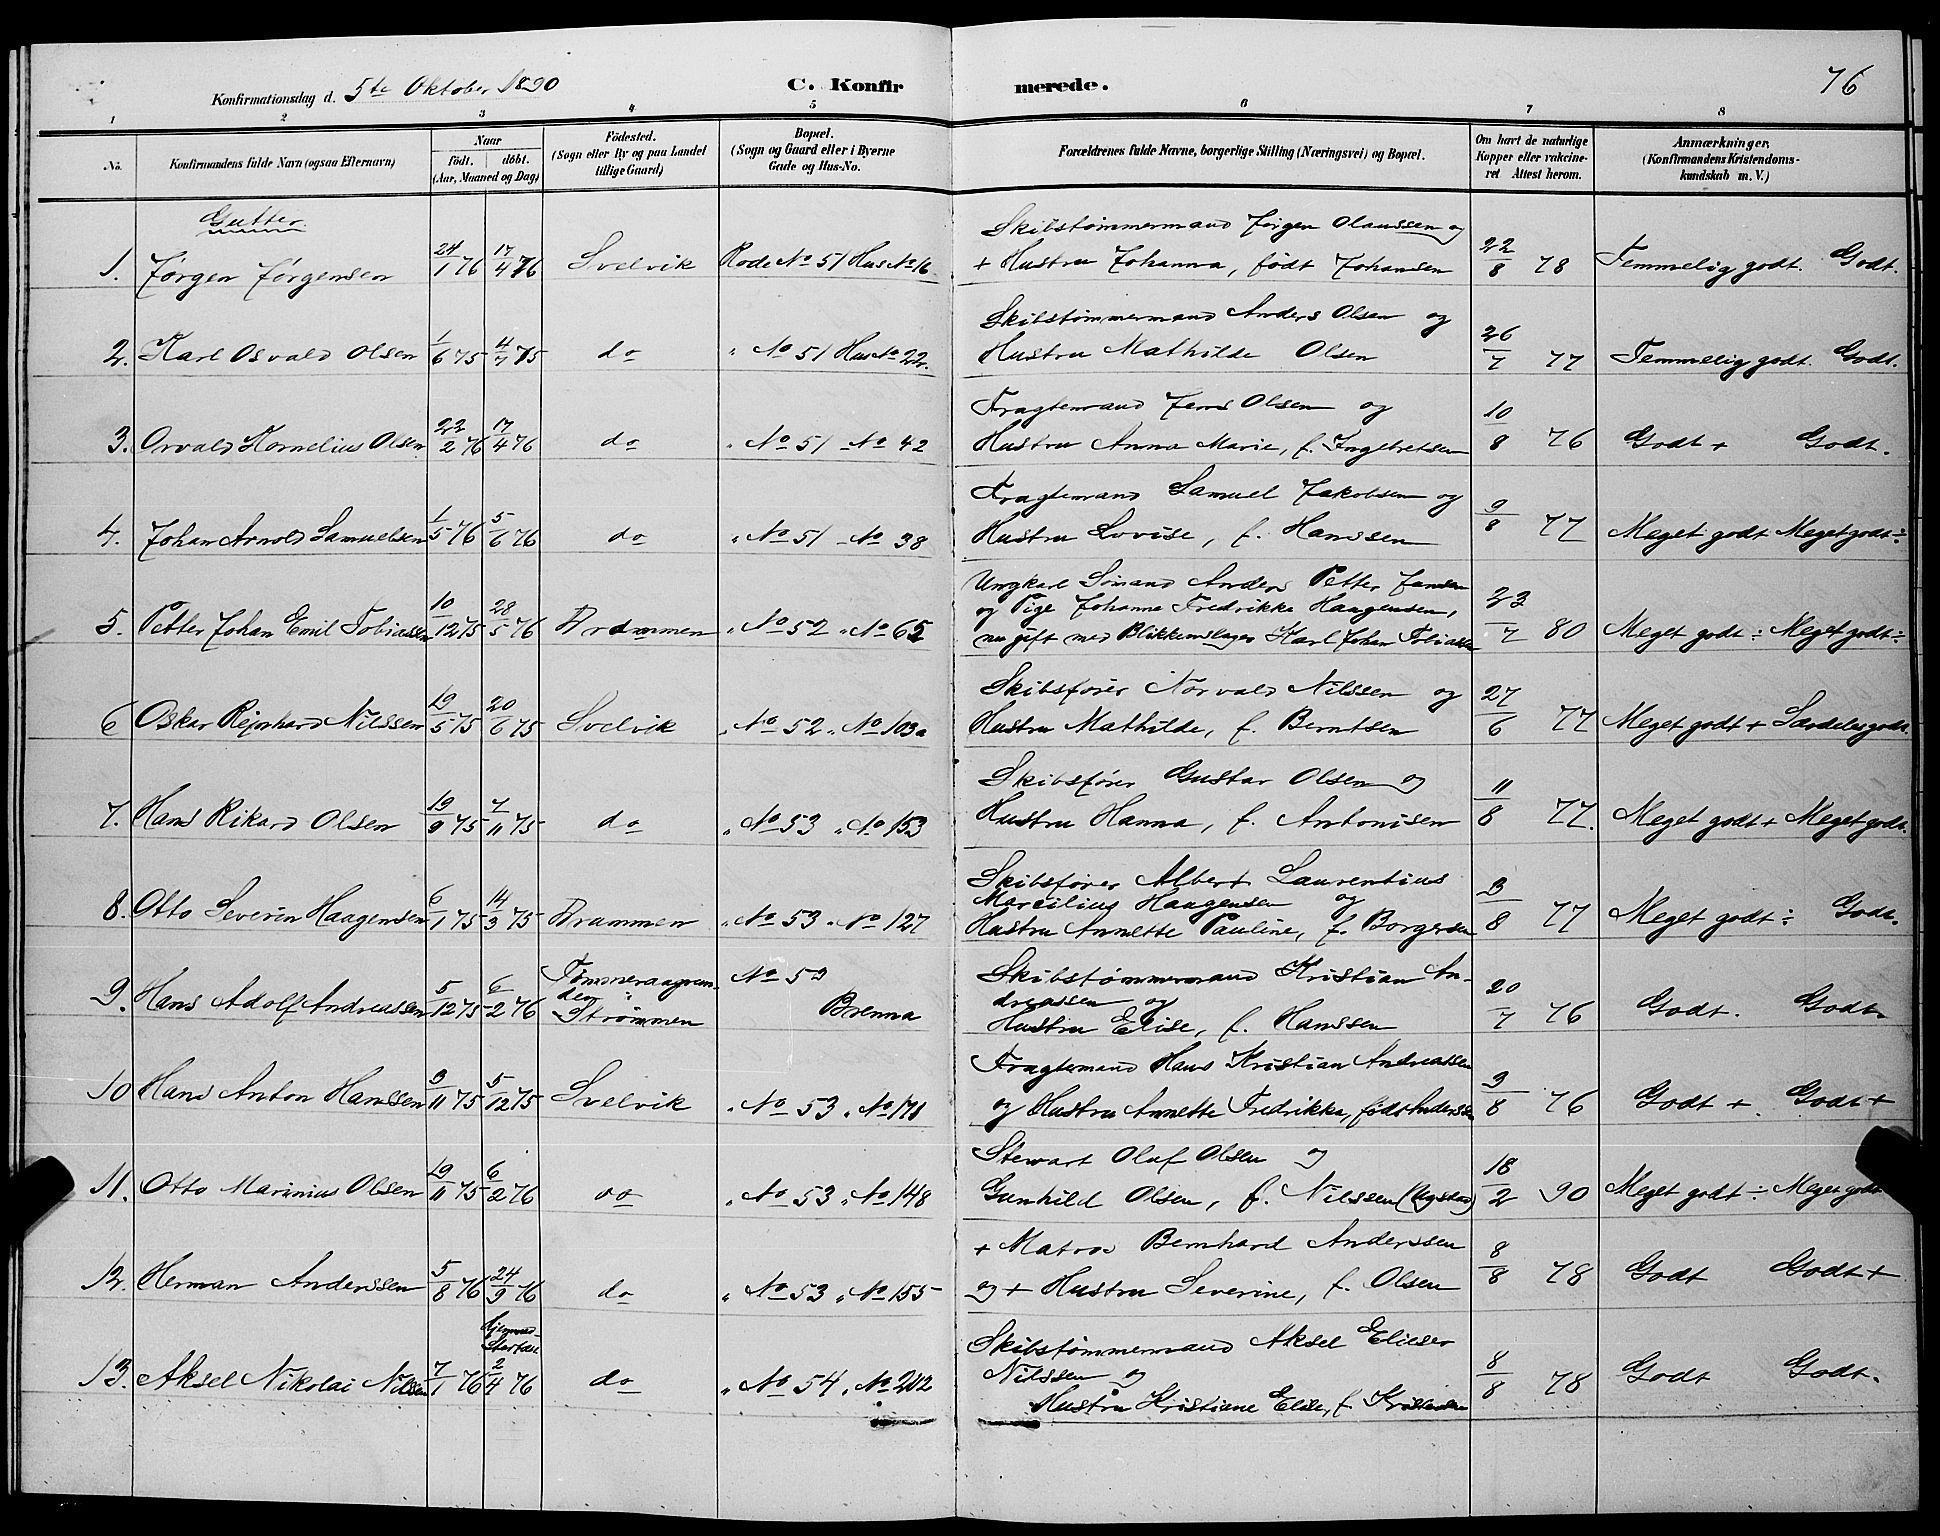 Konfirmationsdag d. 5te Oktober 1890 C. Konfirmerede. 76
1 2 3 4 5 6 7 8
No. Konfirmandens fulde Navn (ogsaa Efternavn) Naar födt. döbt. (Aar, Maaned og Dag) Födested. (Sogn eller By og paa Landet tillige Gaard) Bopæl. (Sogn og Gaard eller i Byerne Gade og Hus-No. Forældrenes fulde Navne, borgerlige Stilling (Næringsvei) og Bopæl. Om havt de naturlige Kopper eller vaccineret Attest herom. Anmærkninger, (Konfirmandens Kristendomskundskab m. V.)
Gutter.
1. Jørgen Jørgensen 24/1 76 17/4 76 Svelvik Rode No 51 Hus No 16
Skibstømmermand Jørgen Olaussen og
+ Hustru Johanna, født Johansen 22/8 78 Temmelig godt. Godt.
2. Karl Osvald Olsen 1/6 75 4/7 75 do " No 51 Hus No 22.
Skibstømmermand Anders Olsen og
Hustru Mathilde Olsen 26/7 77 Temmelig godt. Godt.
3. Orvald Kornelius Olsen 22/2 76 17/4 76 do " No 51 - No 42
Fragtemand Jens Olsen og
Hustru Anna Marie, f. Ingebretsen 10/8 76 Godt + Godt.
4. Johan Arnold Samuelsen 1/5 76 5/6 76 do " No 51 - No 38
Fragtemand Samuel Jakobsen og
Hustru Lovise, f. Hanssen 9/8 77 Meget godt Meget godt ÷
5. Petter Johan Emil Tobiassen 10/12 75 28/5 76 Drammen " No 52 " No 65
Ungkarl Sømand Anders Petter Jansen
og Pige Johanna Fredrikke Haagensen,
nu gift med Blikkenslager Karl Johan Tobiassen 23/7 80 Meget godt ÷ Meget godt ÷
6 Oskar Rejnhard Nilssen 19/5 75 20/6 75 Svelvik " No 52 " No 103a
Skibsfører Norvald Nilssen og
Hustru Mathilde, f. Berntsen 27/6 77 Meget godt + Særdeles godt.
7. Hans Rikard Olsen 19/9 75 7/11 75 do " No 53 " No 153
Skibsfører Gustav Olsen og
Hustru Hanna, f. Antonisen 11/8 77. Meget godt + Meget godt.
8. Otto Severin Haagensen 6/1 75 14/3 75 Drammen " No 53 " No 127
Skibsfører Albert Laurentius
Marcilius Haagensen og
Hustru Annette Pauline, f. Borgersen 3/8 77 Meget godt ÷ Godt.
9. Hans Adolf Andreassen 5/12 75 6/2 76 Tømmeraasgrun-
den
Strømmen
No 53
Brenna
Skibstømmermand Kristian An-
dreassen og
Hustru Elise, f. Hanssen 20/7 76 Godt. Godt.
10 Hans Anton Hanssen 3/11 75 5/12 75 Svelvik " No 53 " No 171
Fragtemand Hans Kristian Andreassen
og Hustru Annette Fredrikke, født Anderssen 3/8 76 Godt + Godt +
11. Otto Marinius Olsen 19/11 75 6/2 76 do " No 53 " No 148
Stewart Oluf Olsen og
Gunhild Olsen, f. Nilssen 18/2 90 Meget godt ÷ Meget godt
12. Herman Anderssen 5/8 76 24/9 76 do " No 53 " No 155
+ Matros Bernhard Anderssen
og + Hustru Severine, f. Olsen 8/8 78 Godt Godt +
13. Aksel Nikolai Nilsen 7/1 76 2/4 76 do " No 54 " No 212
Skibstømmermand Aksel Elieser
Nilssen og
Hustru Kristiane Elise, f. Kristensen 8/8 78 Godt Godt.